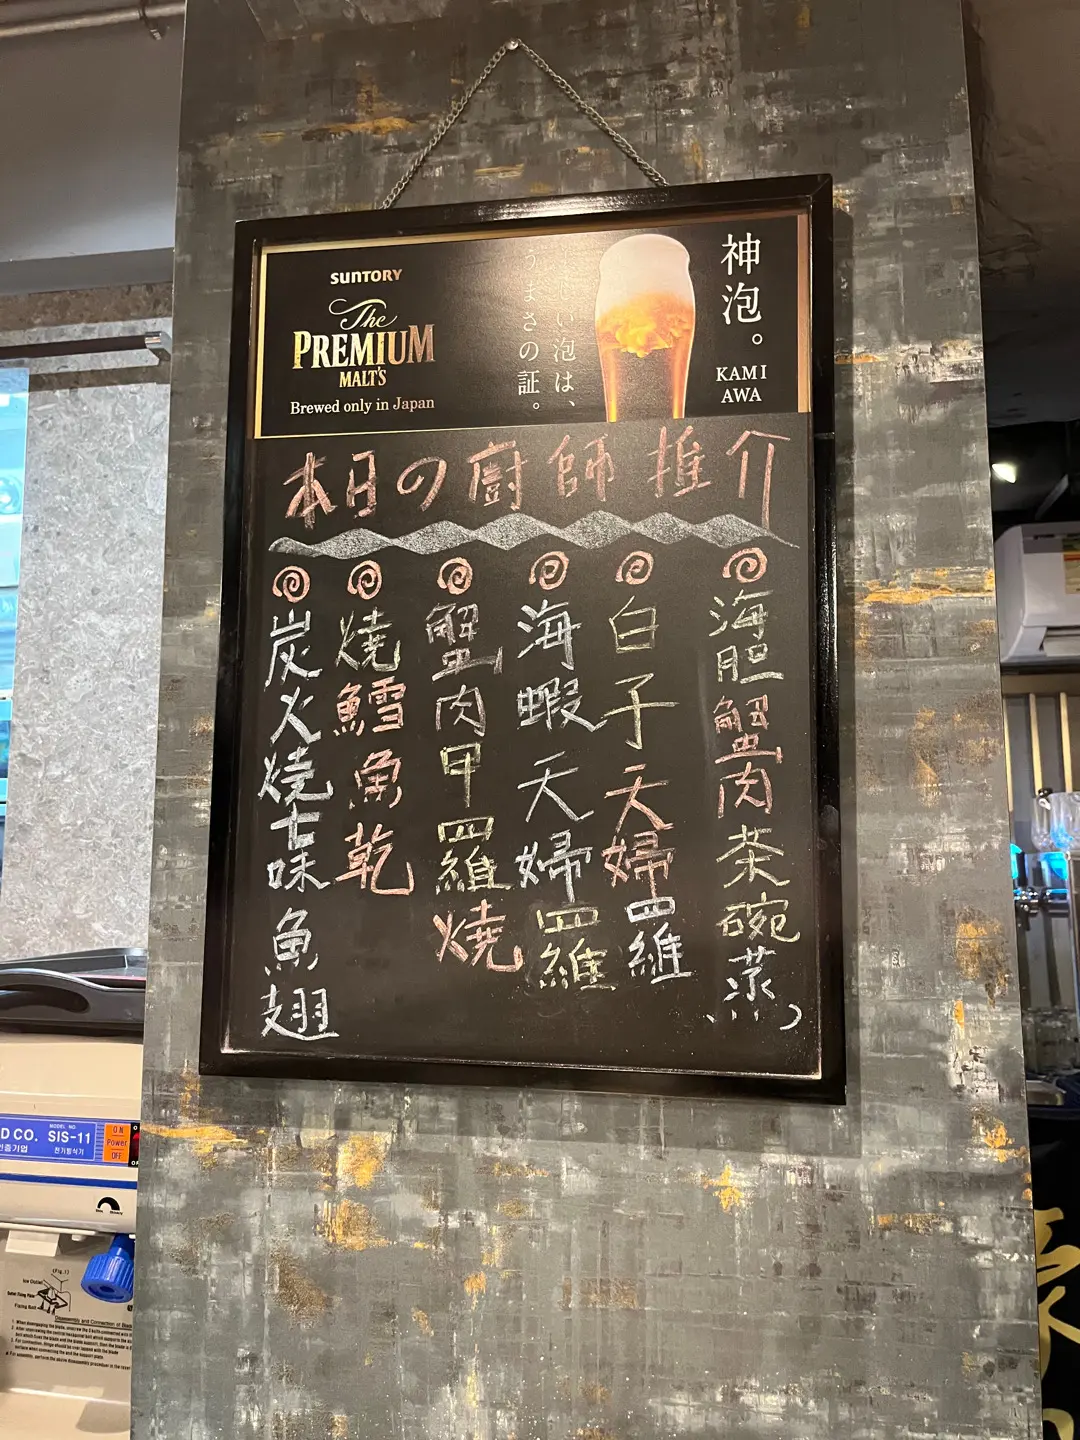 SUNTORY
The
PREMIUM
MALT'S
Brewed only in Japan
い泡は、
うまさの証。
神泡。
KAMI
AWA
本日の廚師推介
海胆蟹肉茶碗蒸
白子天婦羅
海蝦天婦羅
蟹肉甲羅燒
燒鱈魚乾
炭火燒古味魚翅
D CO.
MODEL NO
SIS-11
전기빙삭기
ON
Power
OFF
(Fig.1)